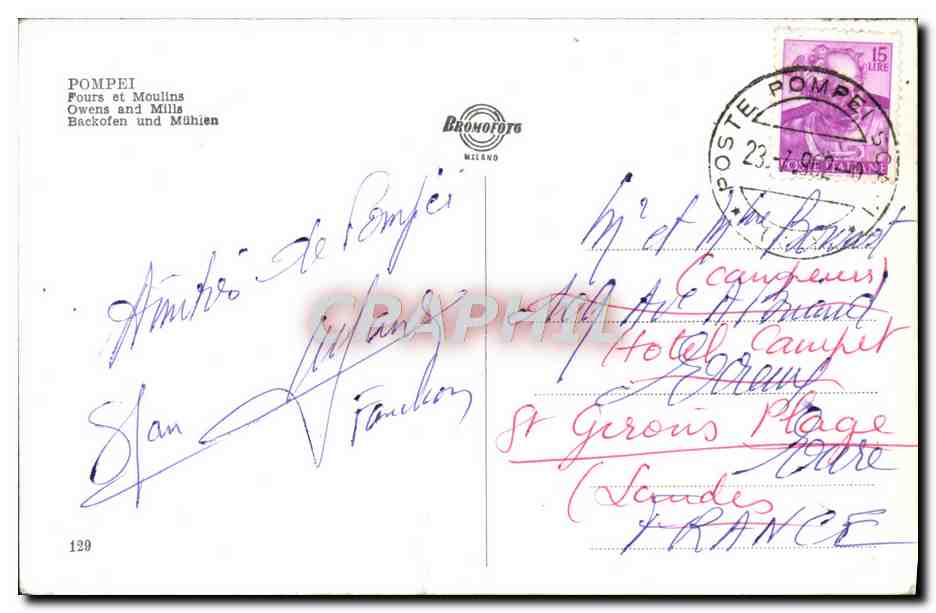 POMPEI
Fours et Moulins
Owens and Mills
Backofen und Mühlen
BROMOFOTO
MILANO
15
LIRE
POSTE ITALIANE
POSTE POMPEI SC
23. 962
Amitiés de Pompéi
Stan
Fanchon
Mr et Mme
(campeurs)
Ave A Briand
Hotel Campet
Evreux
St Girons Plage
Eure
(Landes
FRANCE
CRAPHIL
129